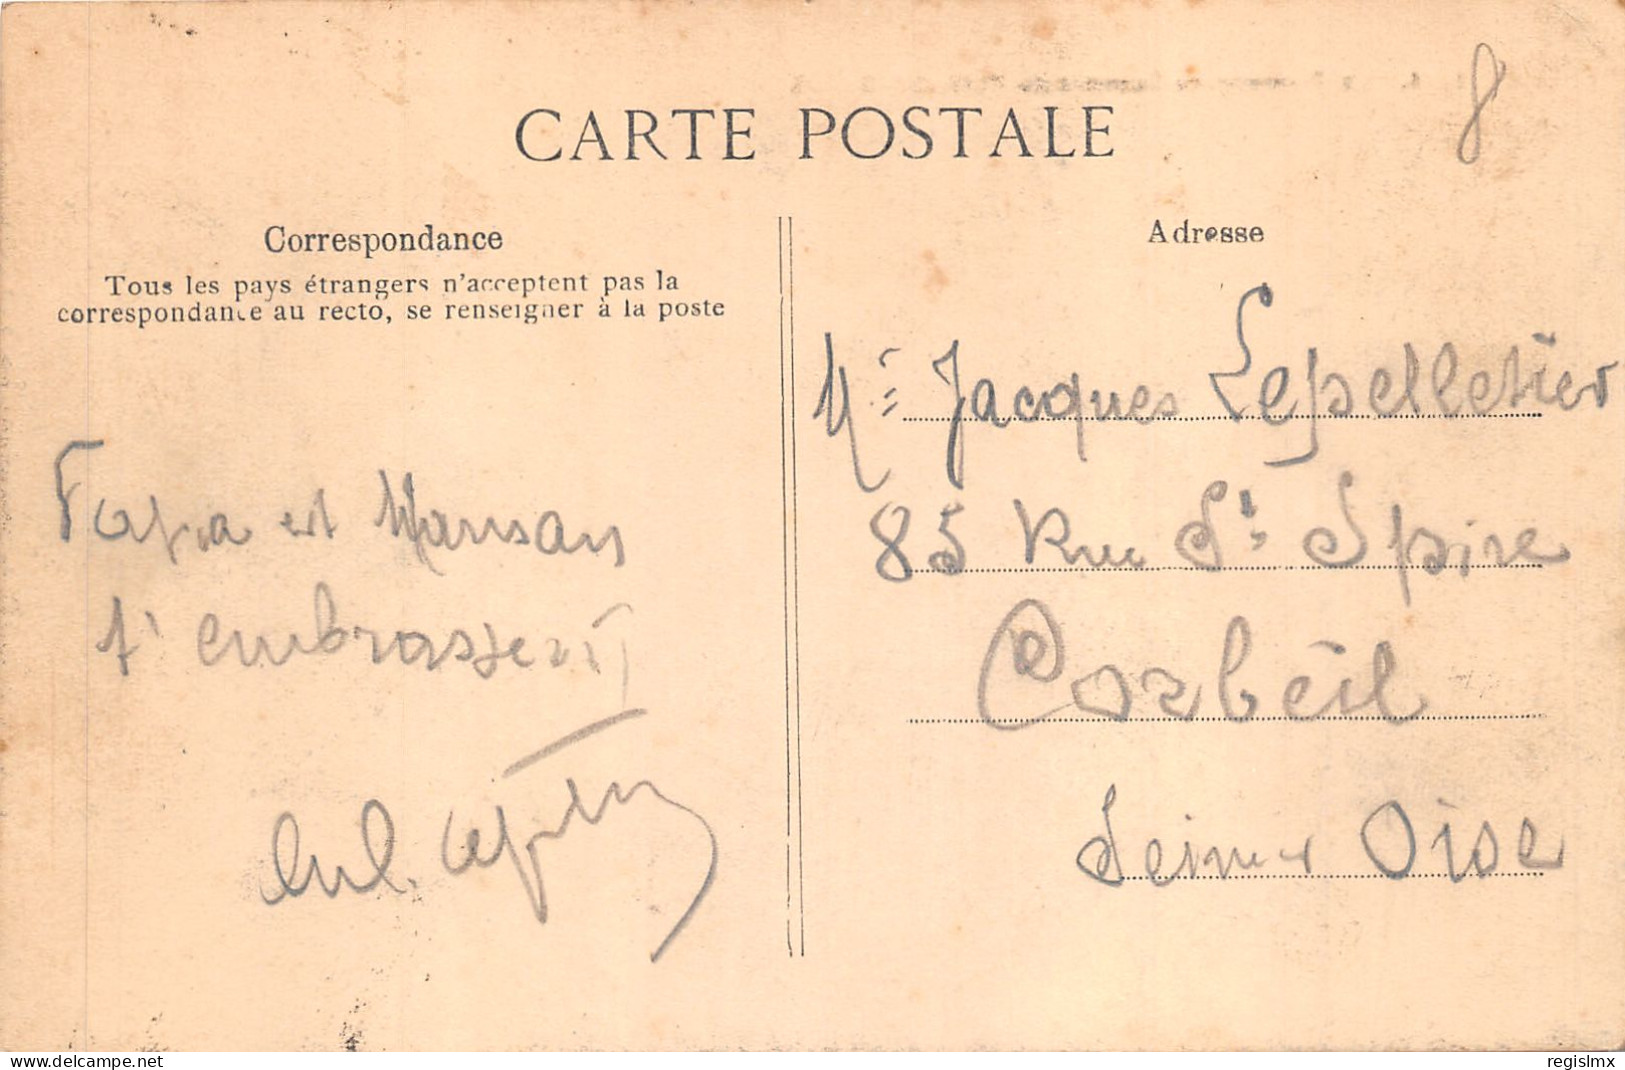 8
CARTE POSTALE
Correspondance
Tous les pays étrangers n'acceptent pas la
correspondance au recto, se renseigner à la poste
Papa et Maman
t'embrassent
Adresse
Mr Jacques Lepelletier
85 Rue St Spire
Corbeil
Seine et Oise
delcampe.net
regislmx